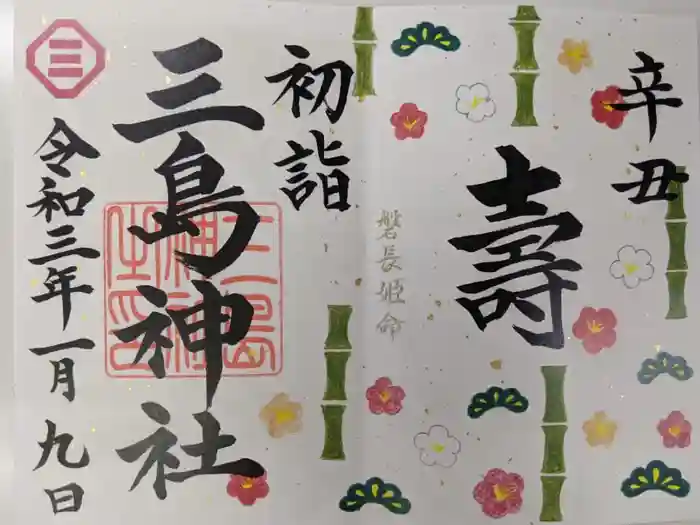 辛丑
壽
磐長姫命
初詣
三島神社
三島神社之印
令和三年一月九日
三